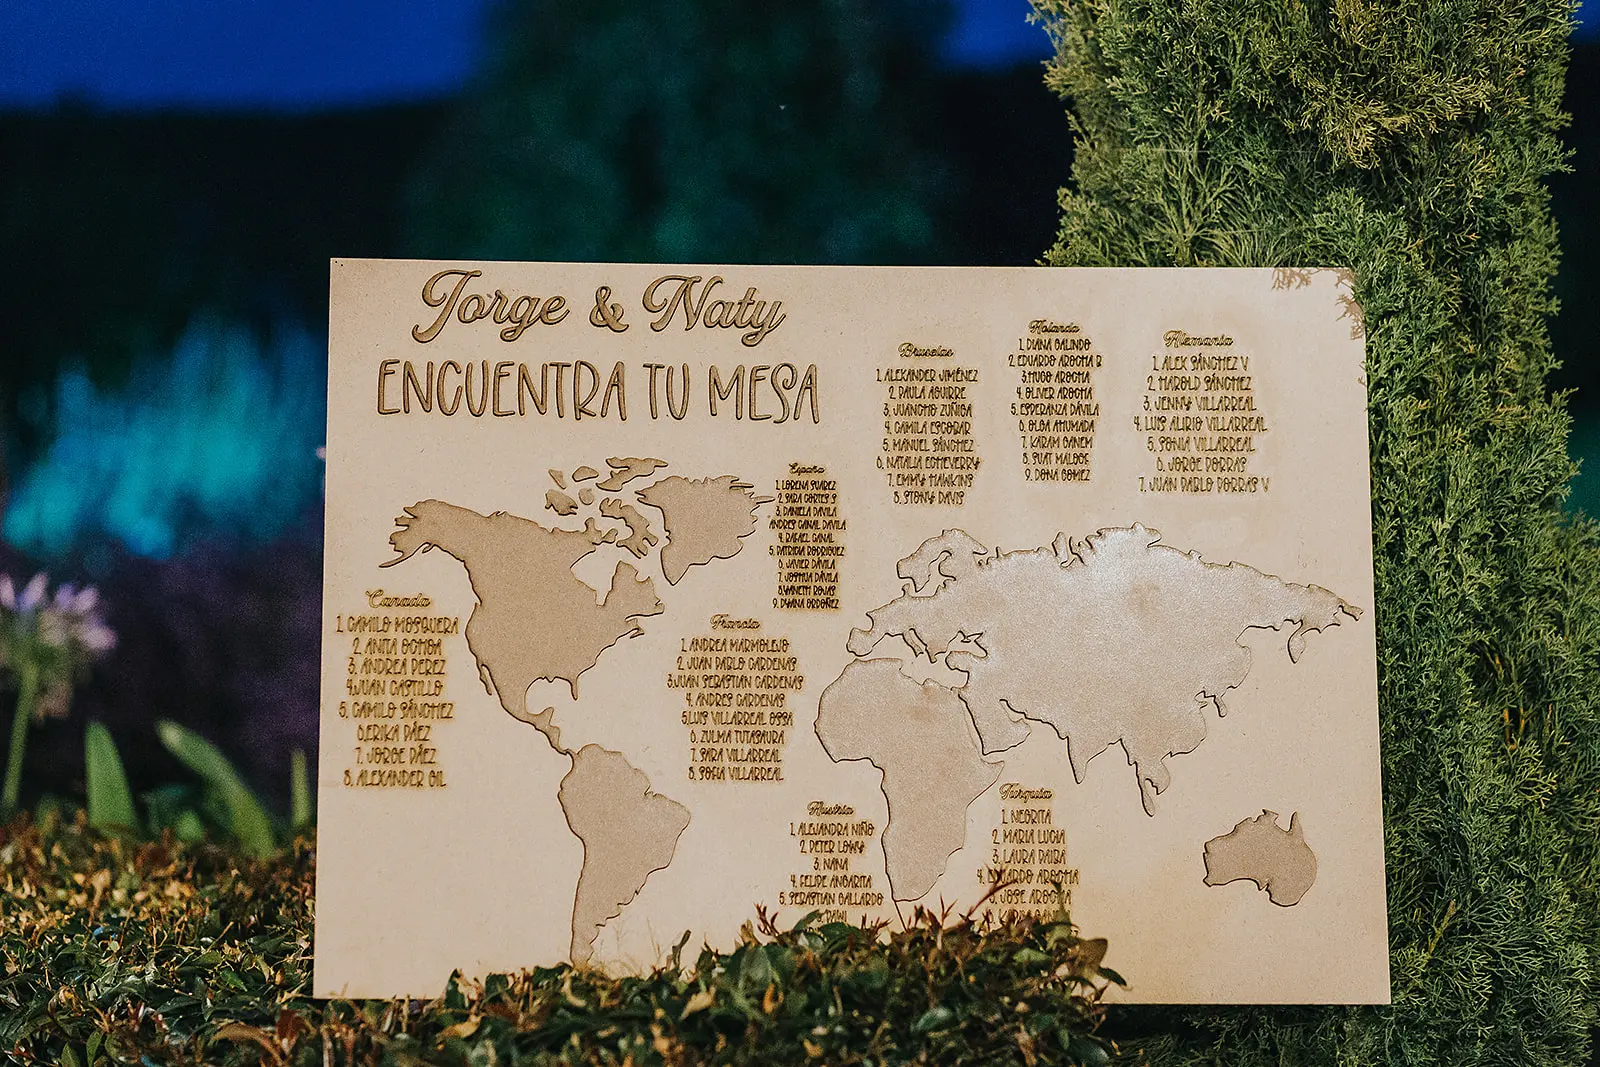 Jorge & Naty
ENCUENTRA TU MESA
Canada
1. CAMILO MOSQUERA
2. ANITA OCHOA
3. ANDREA PEREZ
4.JUAN CASTILLO
5. CAMILO SÁNCHEZ
6.ERIKA PÁEZ
7. JORGE PÁEZ
8. ALEXANDER GIL
España
1. LORENA SUAREZ
2. SARA CORTES S
3. DANIELA DAVILA
ANDRES CANAL DAVILA
4. RAFAEL CANAL
5. PATRICIA RODRIGUEZ
6. JAVIER DÁVILA
7. JOSHUA DÁVILA
8.YANETH ROJAS
9. DYANA ORDOÑEZ
Francia
1. ANDREA MARMOLEJO
2. JUAN PABLO CARDENAS
3.JUAN SEBASTIAN CARDENAS
4. ANDRES CARDENAS
5.LUIS VILLARREAL OSSA
6. ZULMA TUTASAURA
7. SARA VILLARREAL
8. SOFIA VILLARREAL
Austria
1. ALEJANDRA NIÑO
2. PETER LOWY
3. NANA
4. FELIPE ANGARITA
5. SEBASTIAN GALLARDO
Bruselas
1. ALEXANDER JIMÉNEZ
2. PAULA AGUIRRE
3. JUANCHO ZUÑIGA
4. CAMILA ESCOBAR
5. MANUEL SÁNCHEZ
6. NATALIA ECHEVERRY
7. EMMY HAWKINS
8. STONY DAVIS
Holanda
1. DIANA GALINDO
2. EDUARDO AROCHA R
3.HUGO AROCHA
4. OLIVER AROCHA
5. ESPERANZA DÁVILA
6. OLGA AHUMADA
7. KARAM GANEM
8. SUAT MALOOF
9. DONA GOMEZ
Alemania
1. ALEX SÁNCHEZ V
2. HAROLD SÁNCHEZ
3. JENNY VILLARREAL
4. LUIS ALIRIO VILLARREAL
5. SONIA VILLARREAL
6. JORGE PORRAS
7. JUAN PABLO PORRAS V
Turquia
1. NEGRITA
2. MARIA LUCIA
3. LAURA DAISA
4. EDUARDO AROCHA
5. JOSE AROCHA